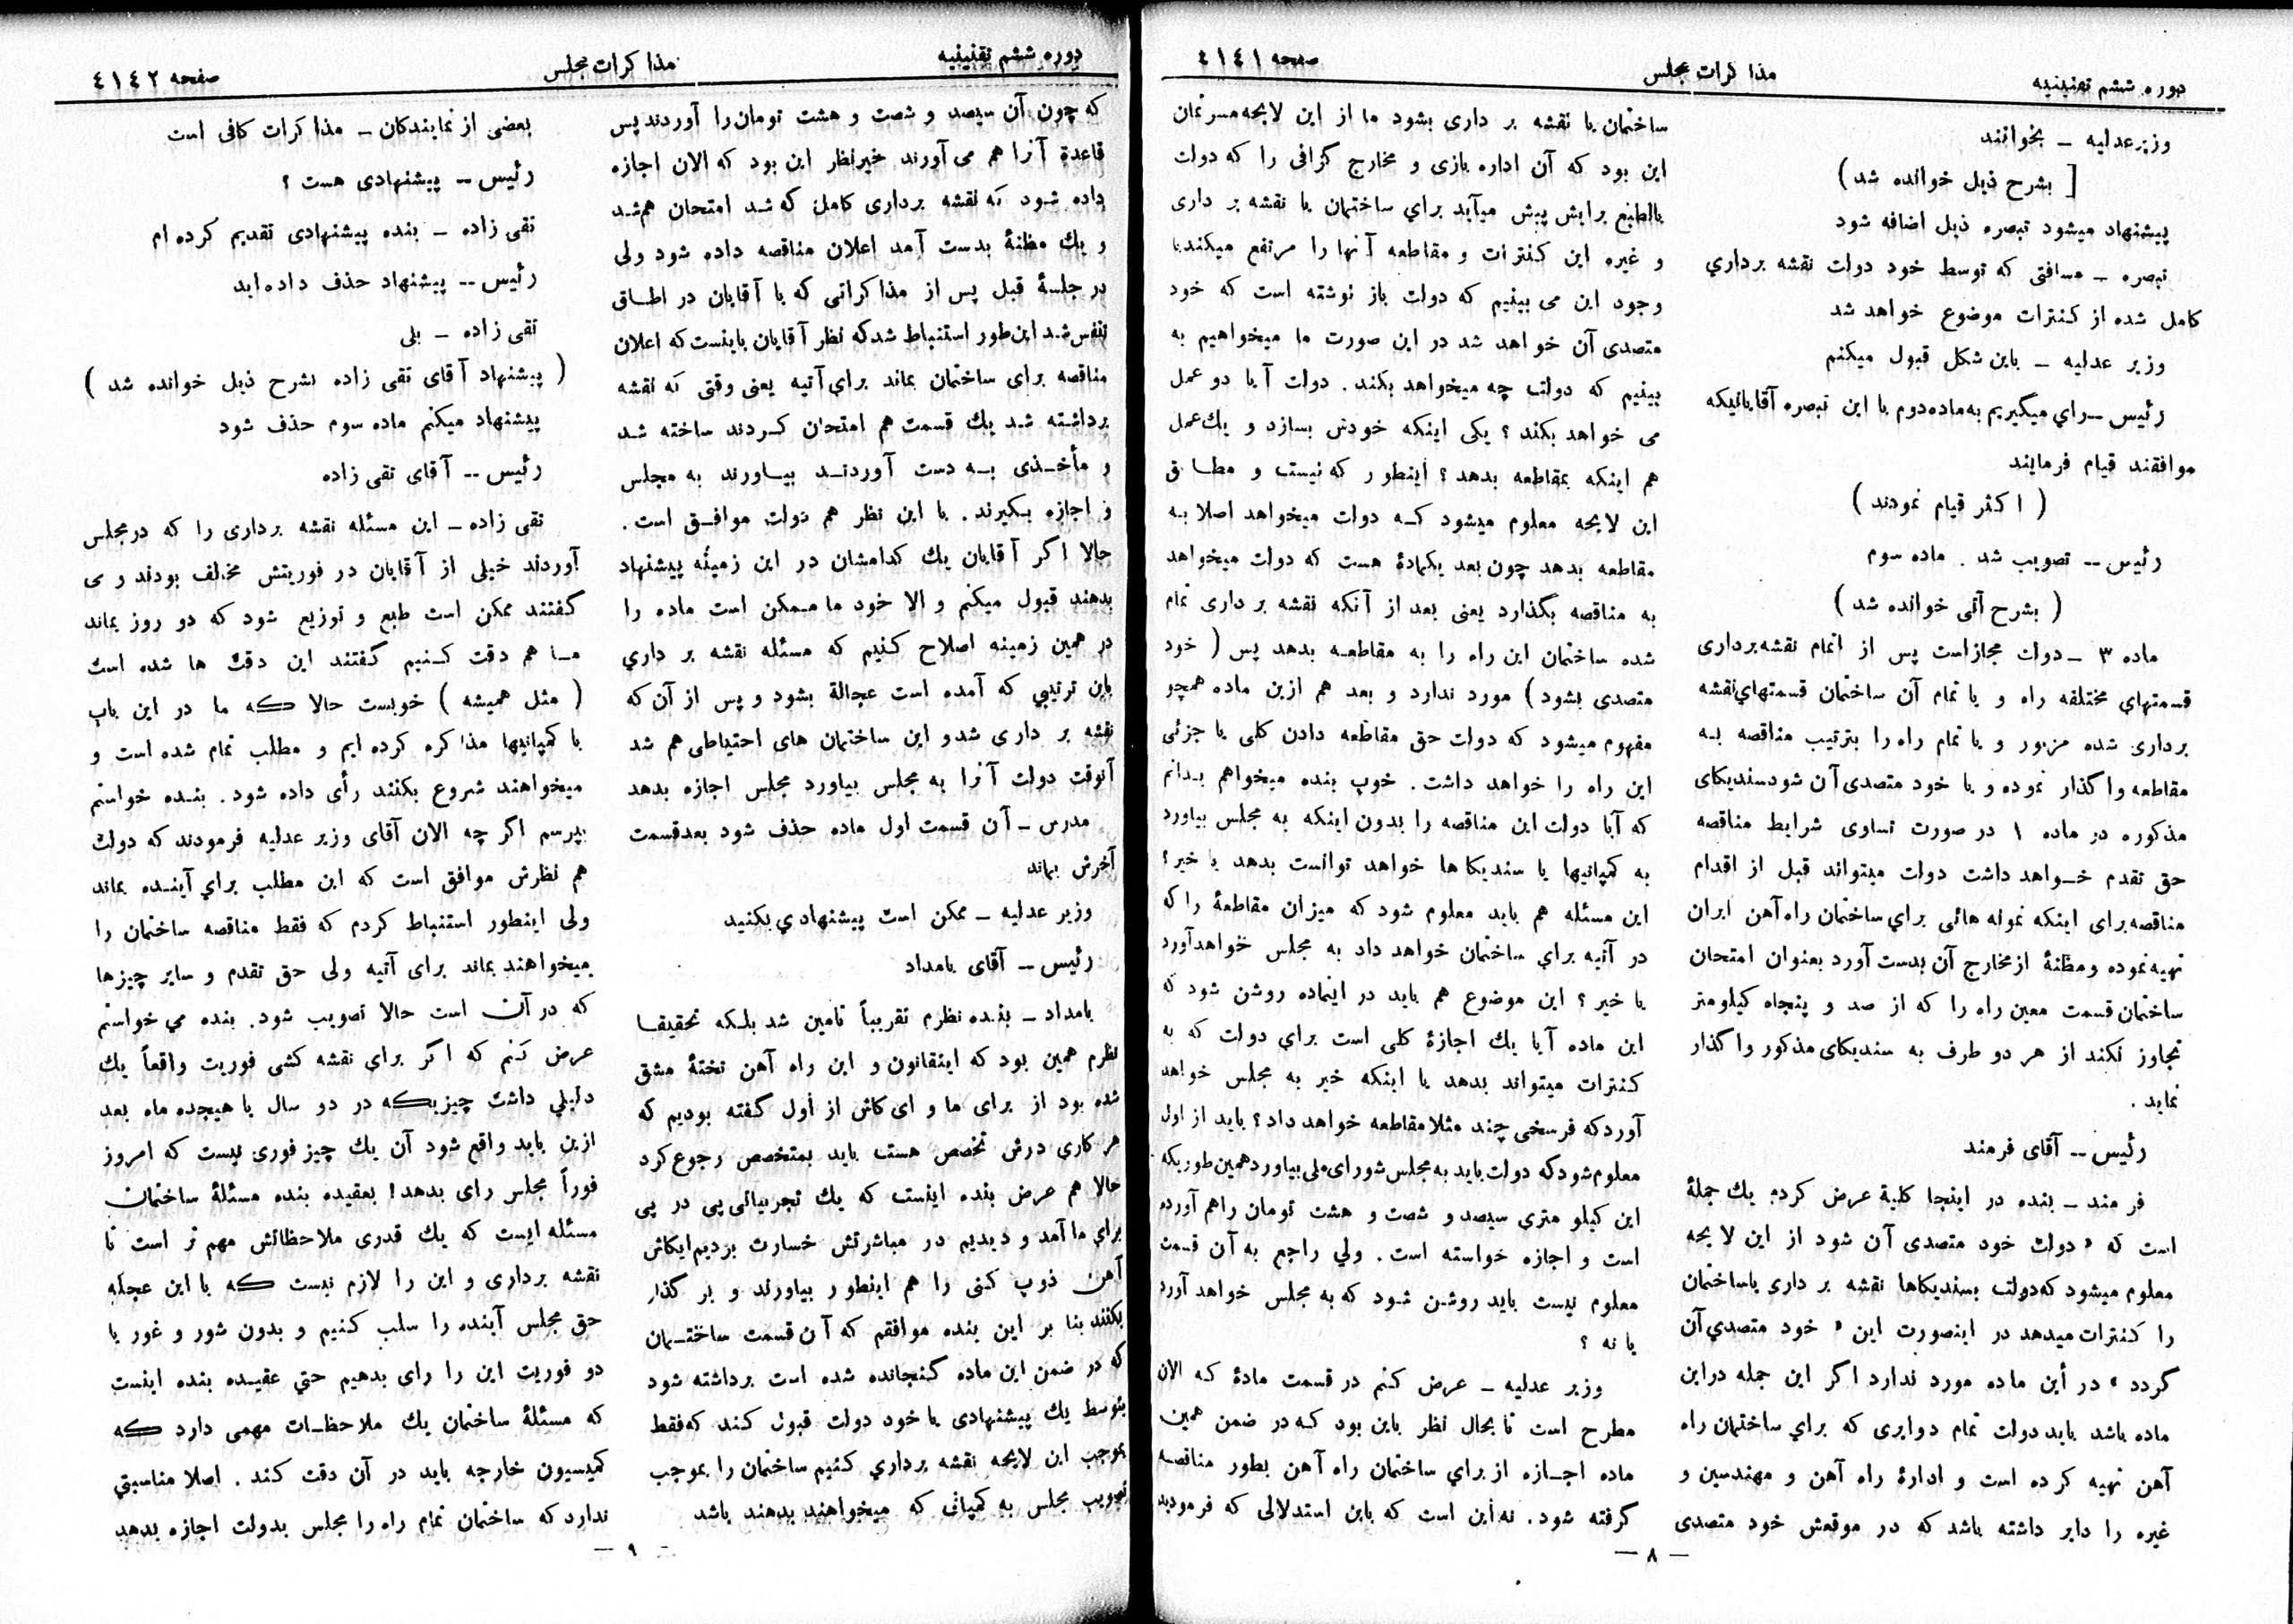 دوره ششم تقنینیه
مذاکرات مجلس
صفحه ٤١٤١
وزیر عدلیه ـ بخوانند
[ بشرح ذیل خوانده شد )
پیشنهاد میشود تبصره ذیل اضافه شود
تبصره ـ مسافتی که توسط خود دولت نقشه برداری
کامل شده از کنترات موضوع خواهد شد
وزیر عدلیه ـ باین شکل قبول میکنم
رئیس ــ رای میگیریم به ماده دوم با این تبصره آقایانیکه
موافقند قیام فرمایند
( اکثر قیام نمودند )
رئیس ــ تصویب شد . ماده سوم
( بشرح آتی خوانده شد )
ماده ۳ ـ دولت مجاز است پس از اتمام نقشه برداری
قسمتهای مختلفه راه و یا تمام آن ساختمان قسمتهای نقشه
برداری شده مزبور و یا تمام راه را بترتیب مناقصه به
مقاطعه واگذار نموده و یا خود متصدی آن شود سندیکای
مذکوره در ماده ۱ در صورت تساوی شرایط مناقصه
حق تقدم خواهد داشت دولت میتواند قبل از اقدام
مناقصه برای اینکه نمونه هائی برای ساختمان راه آهن ایران
تهیه نموده و مظنهٔ از مخارج آن بدست آورد بعنوان امتحان
ساختمان قسمت معین راه را که از صد و پنجاه کیلومتر
تجاوز نکند از هر دو طرف به سندیکای مذکور واگذار
نماید .
رئیس ــ آقای فرمند
فرمند ـ بنده در اینجا کلیة عرض کردم یك جملهٔ
است که « دولت خود متصدی آن شود از این لایحه
معلوم میشود که دولت بسندیکاها نقشه برداری یا ساختمان
را کنترات میدهد در اینصورت این « خود متصدی آن
گردد » در این ماده مورد ندارد اگر این جمله در این
ماده باشد باید دولت تمام دوایری که برای ساختمان راه
آهن تهیه کرده است و ادارهٔ راه آهن و مهندسین و
غیره را دایر داشته باشد که در موقعش خود متصدی
ساختمان یا نقشه برداری بشود ما از این لایحه مسرتمان
این بود که آن اداره بازی و مخارج گزافی را که دولت
بالطبع برایش پیش میآید برای ساختمان یا نقشه برداری
و غیره این کنترات و مقاطعه آنها را مرتفع میکند با
وجود این می بینیم که دولت باز نوشته است که خود
متصدی آن خواهد شد در این صورت ما میخواهیم به
بینیم که دولت چه میخواهد بکند . دولت آیا دو عمل
می خواهد بکند ؟ یکی اینکه خودش بسازد و یك عمل
هم اینکه بمقاطعه بدهد ؟ اینطور که نیست و مطابق
این لایحه معلوم میشود که دولت میخواهد اصلا به
مقاطعه بدهد چون بعد یکمادهٔ هست که دولت میخواهد
به مناقصه بگذارد یعنی بعد از آنکه نقشه برداری تمام
شده ساختمان این راه را به مقاطعه بدهد پس ( خود
متصدی بشود ) مورد ندارد و بعد هم ازین ماده همچو
مفهوم میشود که دولت حق مقاطعه دادن کلی یا جزئی
این راه را خواهد داشت . خوب بنده میخواهم بدانم
که آیا دولت این مناقصه را بدون اینکه به مجلس بیاورد
به کمپانیها یا سندیکاها خواهد توانست بدهد یا خیر ؟
این مسئله هم باید معلوم شود که میزان مقاطعهٔ را که
در آتیه برای ساختمان خواهد داد به مجلس خواهد آورد
یا خیر ؟ این موضوع هم باید در اینماده روشن شود که
این ماده آیا یك اجازهٔ کلی است برای دولت که به
کنترات میتواند بدهد یا اینکه خیر به مجلس خواهد
آورد که فرسخی چند مثلا مقاطعه خواهد داد ؟ باید از اول
معلوم شود که دولت باید به مجلس شورای ملی بیاورد همین طوریکه
این کیلو متری سیصد و شصت و هشت تومان را هم آورده
است و اجازه خواسته است . ولی راجع به آن قسمت
معلوم نیست باید روشن شود که به مجلس خواهد آورد
یا نه ؟
وزیر عدلیه ـ عرض کنم در قسمت مادهٔ که الان
مطرح است تا بحال نظر باین بود که در ضمن همین
ماده اجازه از برای ساختمان راه آهن بطور مناقصه
گرفته شود . نه این است که باین استدلالی که فرمودید
ـ ۸ ـ
دوره ششم تقنینیه
مذاکرات مجلس
صفحه ٤١٤٢
که چون آن سیصد و شصت و هشت تومان را آوردند پس
قاعدة آنرا هم می آورند خیر نظر این بود که الان اجازه
داده شود که نقشه برداری کامل که شد امتحان هم شد
و یك مظنهٔ بدست آمد اعلان مناقصه داده شود ولی
در جلسهٔ قبل پس از مذاکراتی که با آقایان در اطاق
تنفس شد این طور استنباط شد که نظر آقایان باینست که اعلان
مناقصه برای ساختمان بماند برای آتیه یعنی وقتی که نقشه
برداشته شد یك قسمت هم امتحان کردند ساخته شد
و مأخذی به دست آوردند بیاورند به مجلس
و اجازه بگیرند . با این نظر هم دولت موافق است .
حالا اگر آقایان یك کدامشان در این زمینه پیشنهاد
بدهند قبول میکنم و الا خود ما ممکن است ماده را
در همین زمینه اصلاح کنیم که مسئله نقشه برداری
باین ترتیبی که آمده است عجالة بشود و پس از آن که
نقشه برداری شد و این ساختمان های احتیاطی هم شد
آنوقت دولت آنرا به مجلس بیاورد مجلس اجازه بدهد
مدرس ـ آن قسمت اول ماده حذف شود بعد قسمت
آخرش بماند
وزیر عدلیه ـ ممکن است پیشنهادی بکنید
رئیس ــ آقای بامداد
بامداد ـ بنده نظرم تقریباً تامین شد بلکه تحقیقا
نظرم همین بود که اینقانون و این راه آهن تختهٔ مشق
شده بود از برای ما و ای کاش از اول گفته بودیم که
هر کاری درش تخصص هست باید بمتخصص رجوع کرد
حالا هم عرض بنده اینست که یك تجربیاتی پی در پی
برای ما آمد و دیدیم در مباشرتش خسارت بردیم ایکاش
آهن ذوب کنی را هم اینطور بیاورند و بر گذار
بکنند بنا بر این بنده موافقم که آن قسمت ساختمان
که در ضمن این ماده گنجانده شده است برداشته شود
بتوسط یك پیشنهادی یا خود دولت قبول کند که فقط
بموجب این لایحه نقشه برداری کنیم ساختمان را بموجب
تصویب مجلس به کمپانی که میخواهند بدهند باشد
بعضی از نمایندگان ـ مذاکرات کافی است
رئیس ــ پیشنهادی هست ؟
تقی زاده ـ بنده پیشنهادی تقدیم کرده ام
رئیس ــ پیشنهاد حذف داده اید
تقی زاده ـ بلی
( پیشنهاد آقای تقی زاده بشرح ذیل خوانده شد )
پیشنهاد میکنم ماده سوم حذف شود
رئیس ــ آقای تقی زاده
تقی زاده ـ این مسئله نقشه برداری را که در مجلس
آوردند خیلی از آقایان در فوریتش مخالف بودند و می
گفتند ممکن است طبع و توزیع شود که دو روز بماند
ما هم دقت کنیم گفتند این دقت ها شده است
( مثل همیشه ) خوبست حالا که ما در این باب
با کمپانیها مذاکره کرده ایم و مطلب تمام شده است و
میخواهند شروع بکنند رأی داده شود . بنده خواستم
بپرسم اگر چه الان آقای وزیر عدلیه فرمودند که دولت
هم نظرش موافق است که این مطلب برای آینده بماند
ولی اینطور استنباط کردم که فقط مناقصه ساختمان را
میخواهند بماند برای آتیه ولی حق تقدم و سایر چیزها
که در آن است حالا تصویب شود . بنده می خواستم
عرض کنم که اگر برای نقشه کشی فوریت واقعاً یك
دلیلی داشت چیزیکه در دو سال یا هیجده ماه بعد
ازین باید واقع شود آن یك چیز فوری نیست که امروز
فوراً مجلس رای بدهد ! بعقیده بنده مسئلهٔ ساختمان
مسئله ایست که یك قدری ملاحظاتش مهم تر است تا
نقشه برداری و این را لازم نیست که با این عجله
حق مجلس آینده را سلب کنیم و بدون شور و غور با
دو فوریت این را رای بدهیم حتی عقیده بنده اینست
که مسئلهٔ ساختمان یك ملاحظات مهمی دارد که
کمیسیون خارجه باید در آن دقت کند . اصلا مناسبتی
ندارد که ساختمان تمام راه را مجلس بدولت اجازه بدهد
ـ ۹ ـ